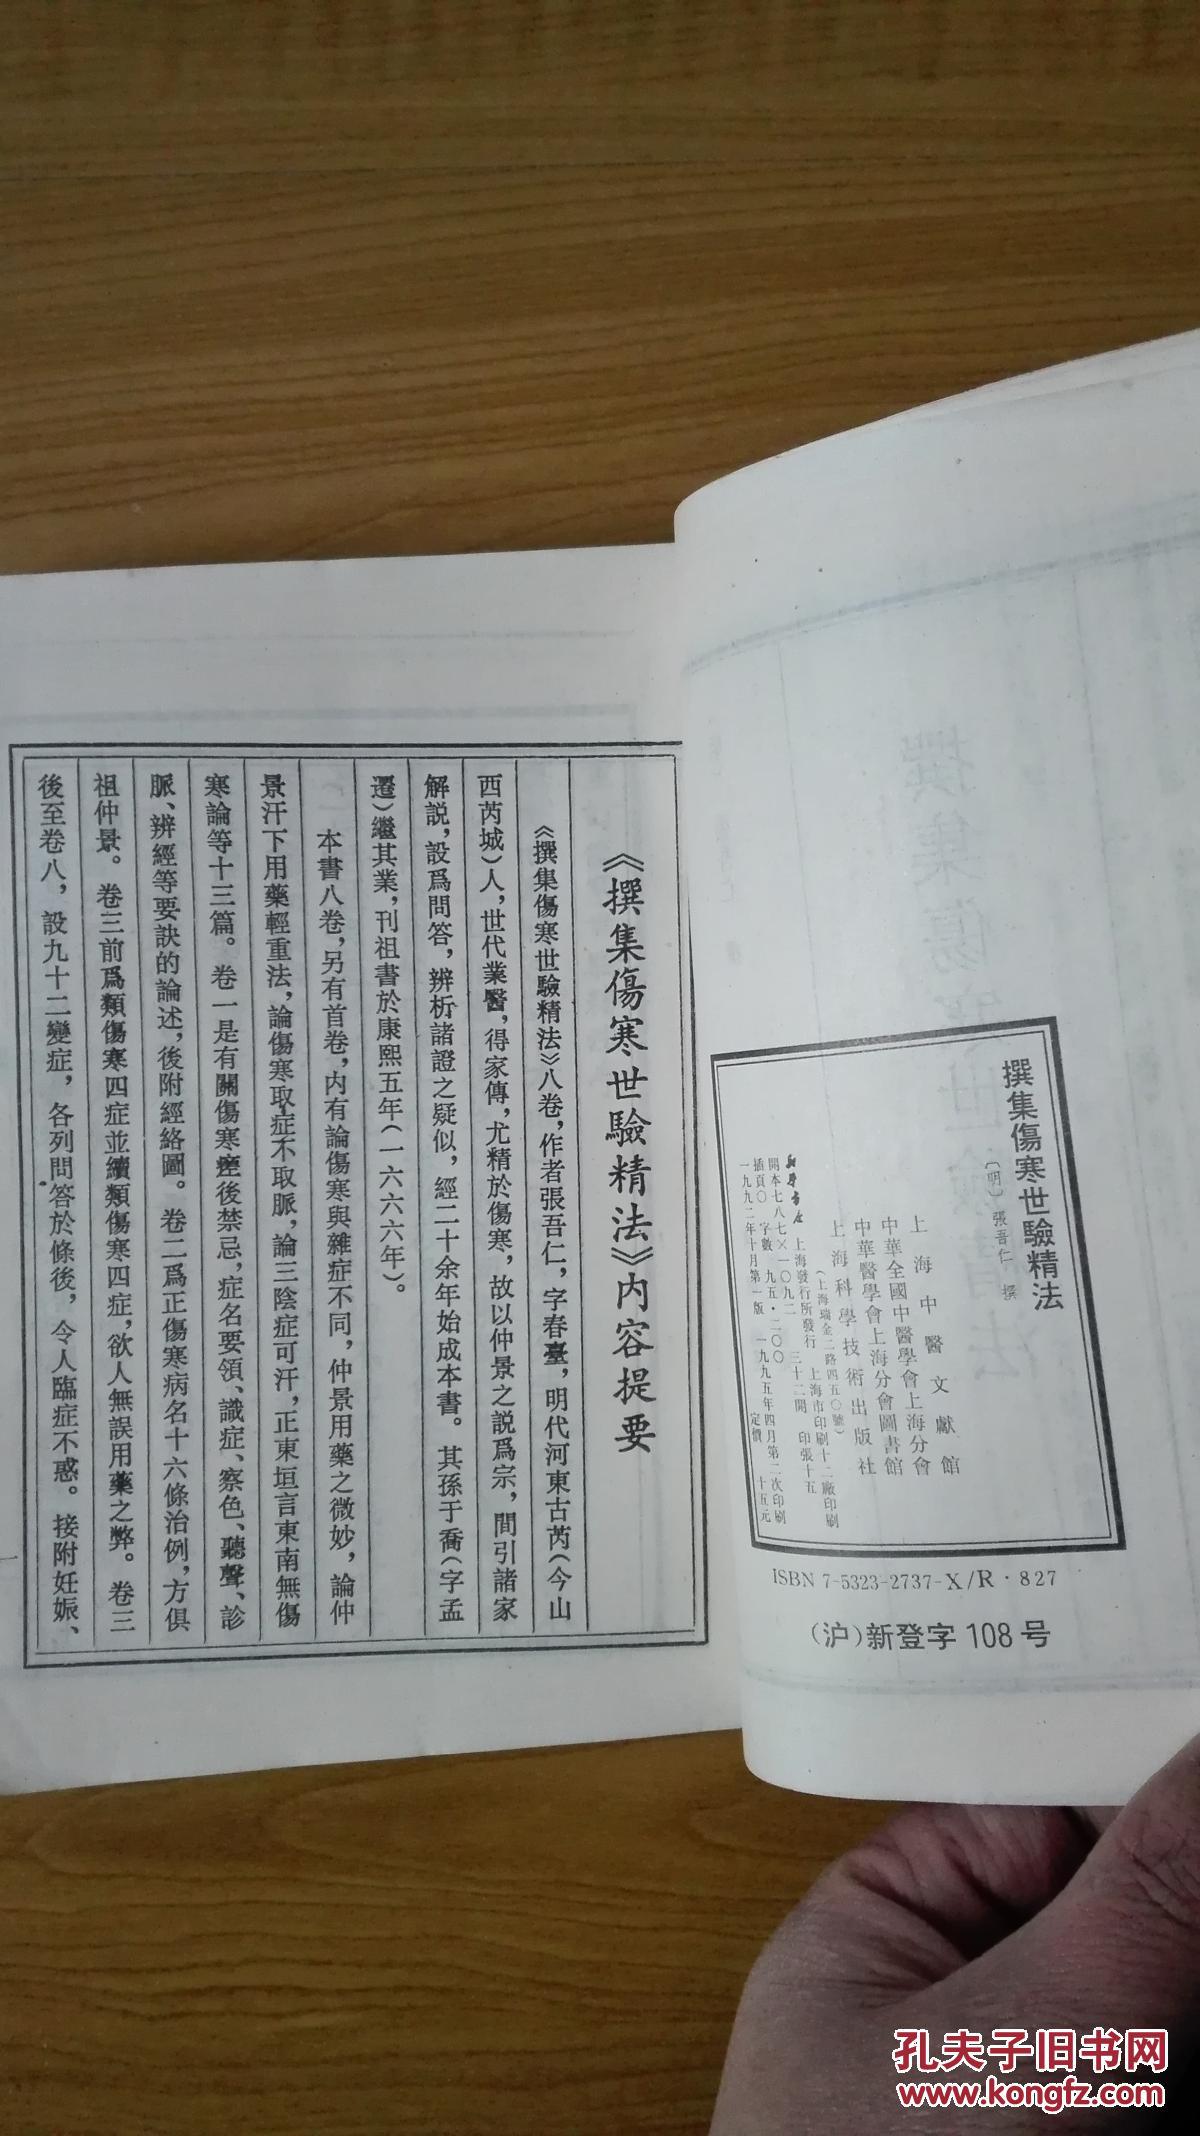 撰集傷寒世驗精法
〔明〕張吾仁 撰
上海中醫文獻館
中華全國中醫學會上海分會
中華醫學會上海分會圖書館
上海科學技術出版社
(上海瑞金二路四五〇號)
新華書店
上海發行所發行 上海市印刷十二廠印刷
開本七八七×一〇九二 三十二開 印張十五
插頁〇 字數 九五·二〇〇
一九九二年十月第一版 一九九五年四月第二次印刷
定價 十五元
ISBN 7-5323-2737-X/R·827
(沪)新登字108号
《撰集傷寒世驗精法》内容提要
《撰集傷寒世驗精法》八卷,作者張吾仁,字春臺,明代河東古芮(今山
西芮城)人,世代業醫,得家傳,尤精於傷寒,故以仲景之説爲宗,間引諸家
解説,設爲問答,辨析諸證之疑似,經二十余年始成本書。其孫于喬(字孟
遷)繼其業,刊祖書於康熙五年(一六六六年)。
本書八卷,另有首卷,内有論傷寒與雜症不同,仲景用藥之微妙,論仲
景汗下用藥輕重法,論傷寒取症不取脈,論三陰症可汗,正東垣言東南無傷
寒論等十三篇。卷一是有關傷寒瘥後禁忌,症名要領、識症、察色、聽聲、診
脈、辨經等要訣的論述,後附經絡圖。卷二爲正傷寒病名十六條治例,方俱
祖仲景。卷三前爲類傷寒四症並續類傷寒四症,欲人無誤用藥之弊。卷三
後至卷八,設九十二變症,各列問答於條後,令人臨症不惑。接附妊娠、
一
孔夫子旧书网
www.kongfz.com